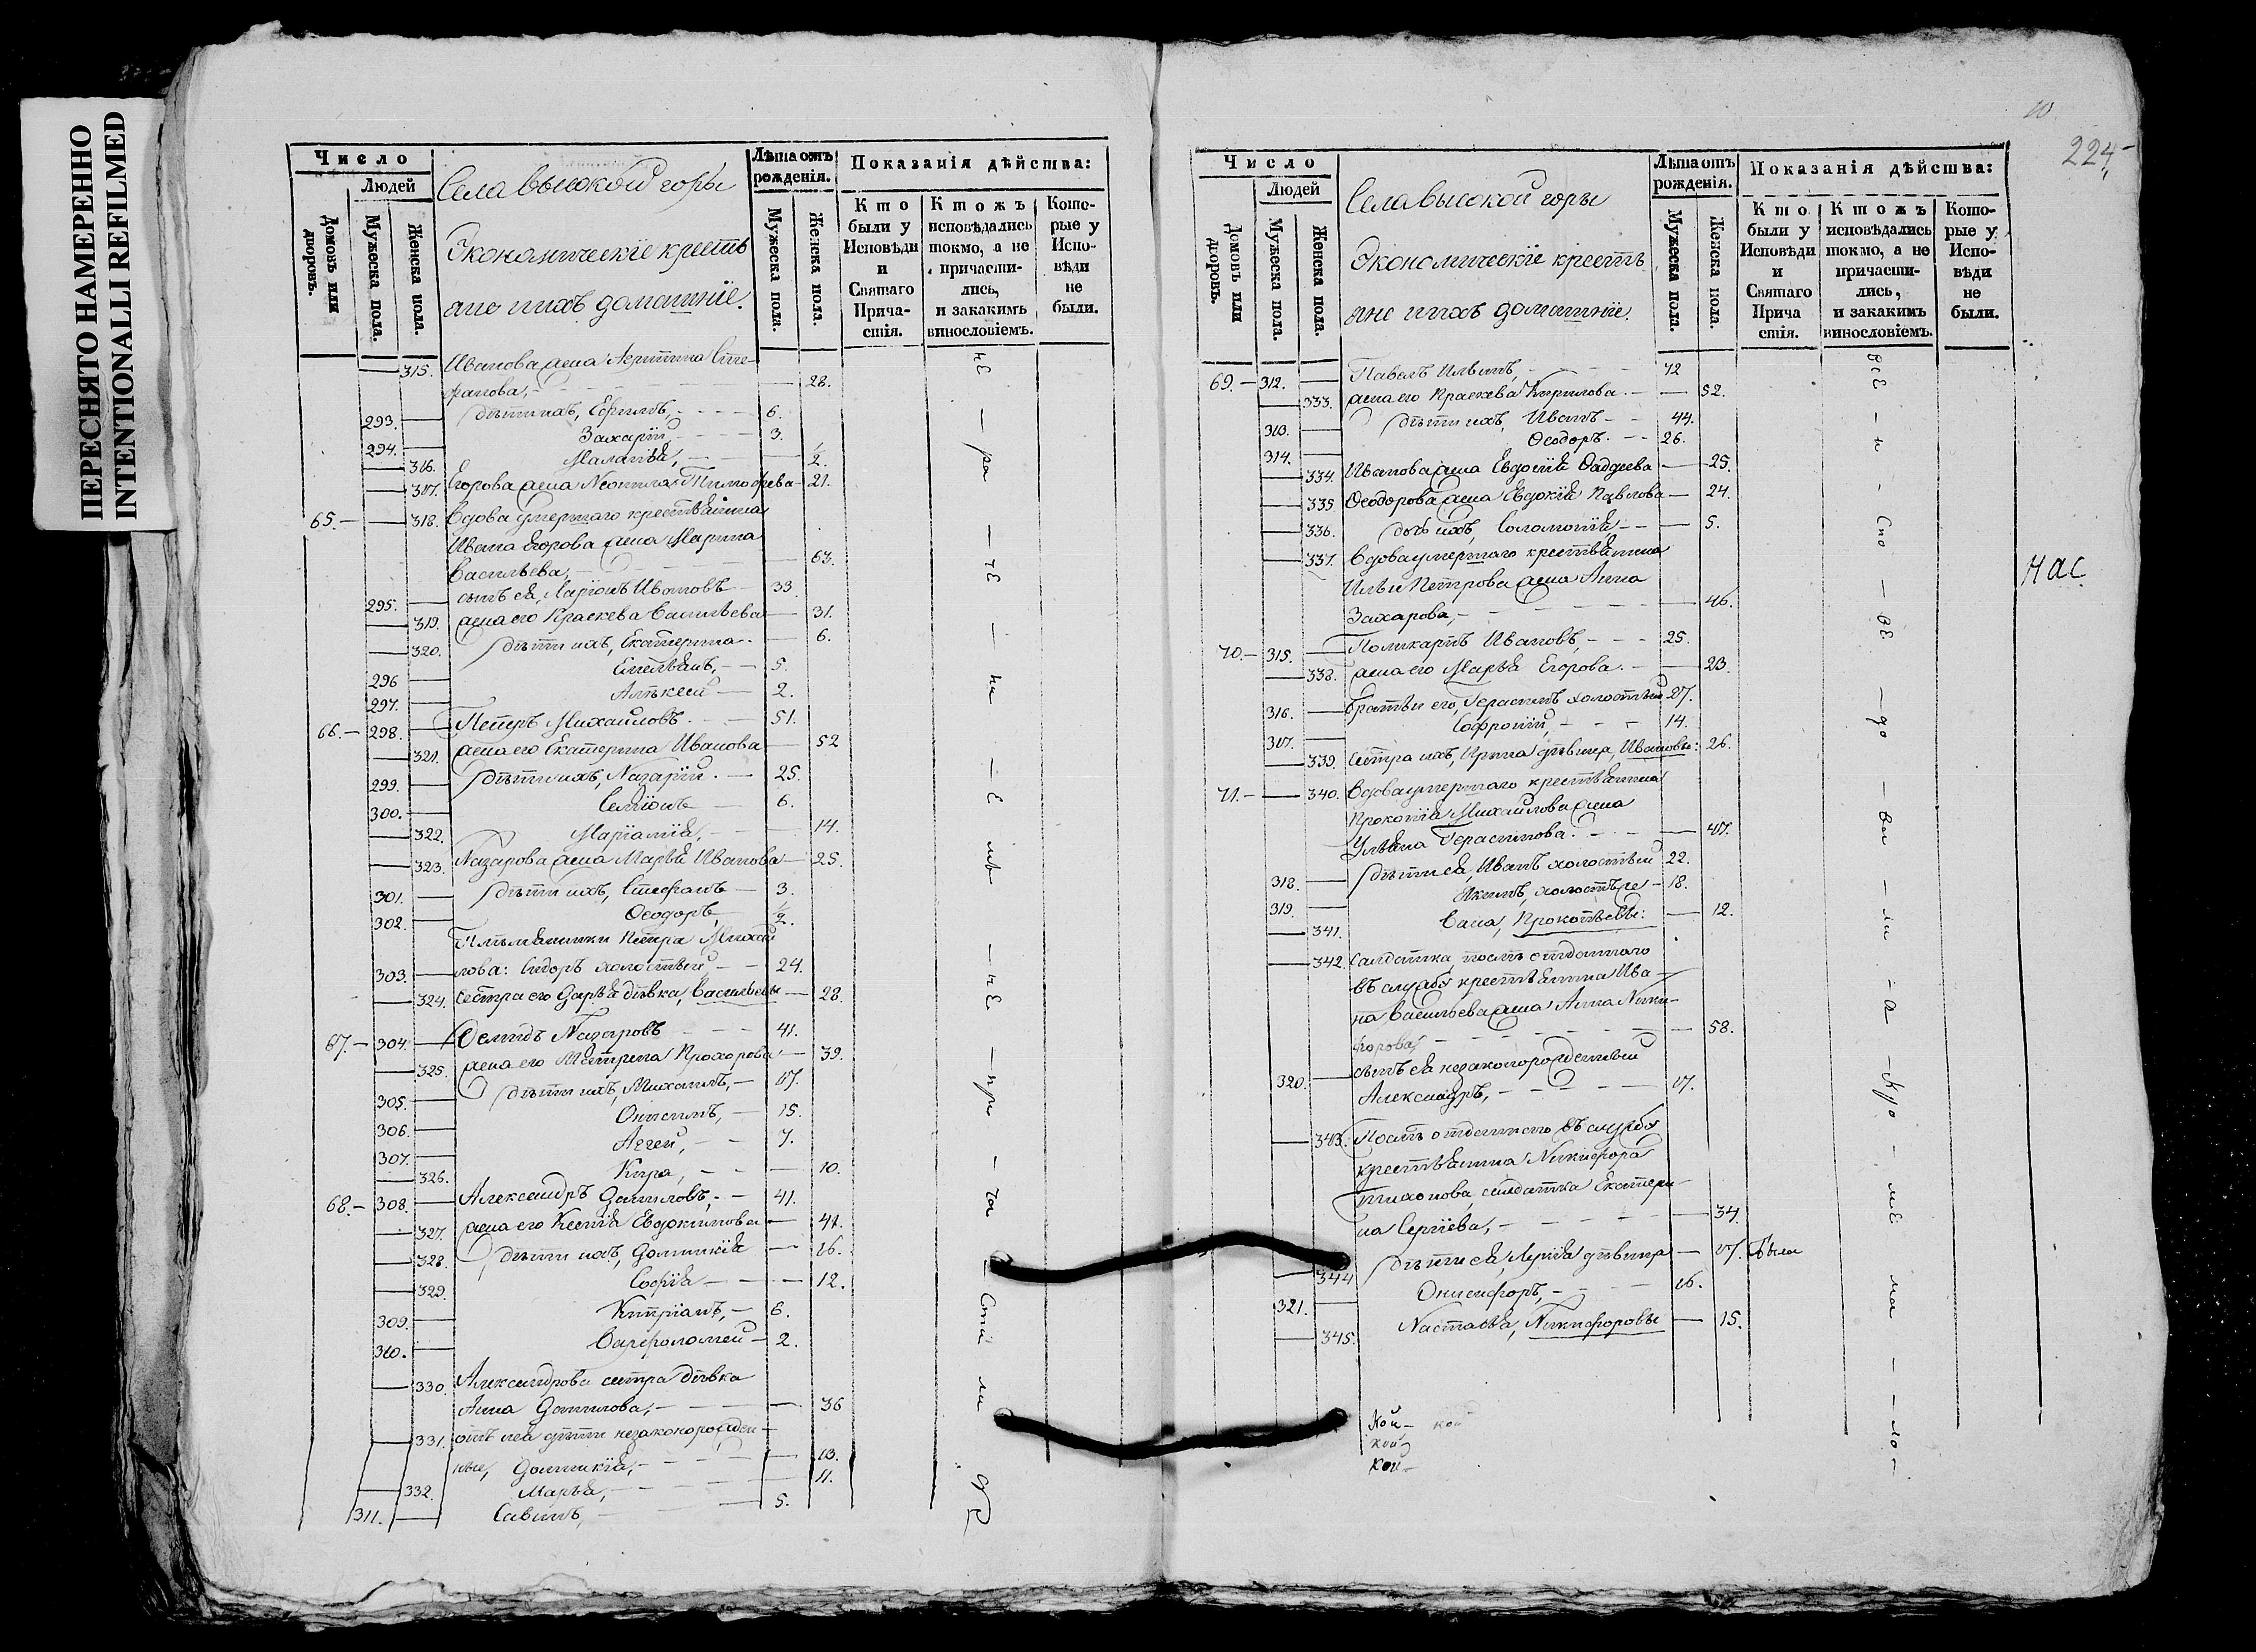 ПЕРЕСНЯТО НАМЕРЕННО
INTENTIONALLI REFILMED
Число
Людей
Домовъ или дворовъ.
Мужеска пола.
Женска пола.
Села высокой горы
Экономическіе кресть
ане ихъ домашніе.
Лѣта отъ рожденія.
Мужеска пола.
Женска пола.
Показанія дѣйства:
Кто были у Исповѣди и Святаго Прича-стія.
Ктожъ исповѣдались токмо, а не причасти-лись, и закакимъ винословіемъ.
Кото-рые у Испо-вѣди не были.
315. Иванова жена Сте-
фанова, 28.
293. дѣти ихъ, Ефимъ, 6.
294. Захарій, 3.
316. Маланья, 1/2.
317. Егорова жена Неонила Тимофеева 21.
65. 318. Вдова умершаго крестьянина
Ивана Егорова жена Марина
Васильева, 63.
295. сынъ ея, Ларіонъ Ивановъ 33
319. жена его Праскева Васильева 31.
320. дѣти ихъ, Екатерина. 6.
296 Емельянъ, 5.
297. Алѣксей 2.
66. 298. Петръ Михайловъ. 51.
321. жена его Екатерина Иванова 52
299. дѣти ихъ, Назарій. 25.
300. Семіонъ 6.
322. Маріамія, 14.
323. Назарова жена Марья Иванова 25.
301. дѣти ихъ, Стефанъ 3.
302. Ѳеодоръ, 1/2.
Племянники Петра Михай
303 лова: Сидоръ холостый 24.
324. сестра его Дарья дѣвка, Васильевы 28.
67. 304. Демидъ Назаровъ 41.
325. жена его Матрена Прохорова 39.
305. дѣти ихъ, Михаилъ, 17.
306. Онисимъ, 15.
307. Аггей, 7.
326. Кира, 10.
68. 308. Александръ Даниловъ, 41.
327. жена его Ксенія Евдокимова 41.
328. дѣти ихъ, Домникія 16.
329. Софія 12.
309. Кипріанъ, 6.
310. Варфоломей 2.
330. Александрова сестра дѣвка
Анна Данилова, 36
331. отъ нея дѣти незаконорожден-
ные, Домникія, 13.
332. Марья, 11.
311. Савинъ, 5.
224
Число
Людей
Домовъ или дворовъ.
Мужеска пола.
Женска пола.
Села высокой горы
Экономическіе кресть
яне ихъ домашніе.
Лѣта отъ рожденія.
Мужеска пола.
Женска пола.
Показанія дѣйства:
Кто были у Исповѣди и Святаго Прича стія.
Ктожъ исповѣдались токмо, а не причасти-лись, и закакимъ винословіемъ.
Кото-рые у Испо-вѣди не были.
69. 312. Павелъ Ильинъ, 42
333. жена его Праскева Кирилова. 52.
313. дѣти ихъ, Иванъ 44.
314. Ѳеодоръ. 26.
334. Иванова жена Евдокія Фаддеева 25.
335 Ѳеодорова жена Евдокія Павлова 24.
336. дочь ихъ, Соломонія 5.
337. вдова умершаго крестьянина
Ильи Петрова жена Анна
Захарова, 46.
70. 315. Поликарпъ Ивановъ, 25.
338. жена его Марья Егорова. 23.
316. братьи его, Герасимъ холостый 17.
317. Софроній, 14.
339. сестра ихъ, Ирина дѣвица, Ивановы: 26.
71. 340. Вдова умершаго крестьянина
Прокопія Михайлова жена
Ульяна Герасимова. 47.
318. дѣти ея, Иванъ холостый 22.
319. Якимъ, холостые 18.
341. Васа, Прокопьевы: 12.
342. Салдатка, отданнаго
въ службу крестьянина Ива
на Васильева жена Анна Ники-
форова 58.
320. сынъ ея незаконорожденный
Александръ, 17.
343. отданнаго въ службу
крестьянина Никифора
Тихонова, салдатка Екатери
на Сергіева, 34.
344 дѣти ея, дѣвица 17. была
321. Онисифоръ, 16.
345. Настасья, Никифоровы 15.
кой кой
кой
кой
нас